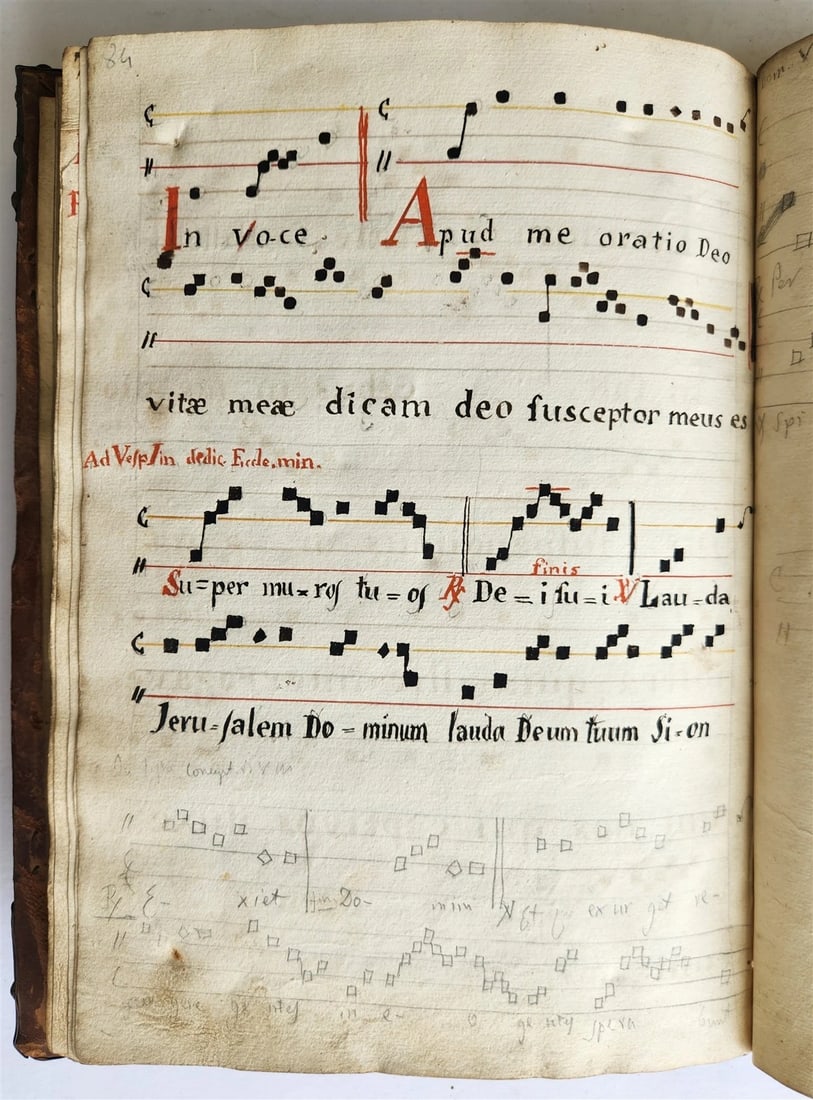 84
In vo-ce Apud me oratio Deo
vitæ meæ dicam deo ſusceptor meus es
Ad Veſp In dedic. Eccle. min.
finis
Su=per mu-roſ tu=oſ ℟ De=i ſu=i ℣ Lau=da
Jeru=ſalem Do=minum lauda Deum tuum Si-on
℟ E- xiet Do- min ℣ Et qui exur get re-
gentes in e- o gentes spera bunt